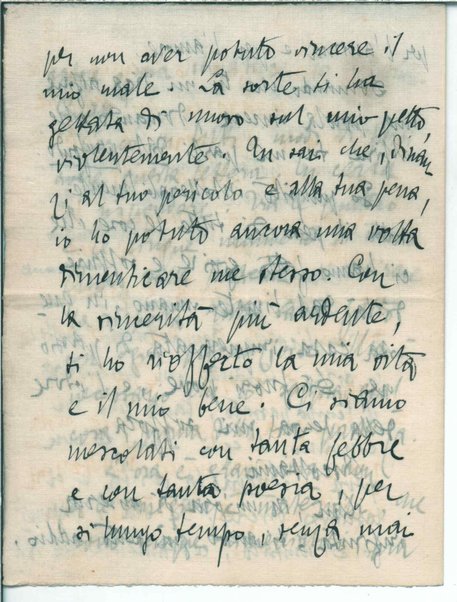 per non aver potuto vincere il
mio male. La sorte ti ha
gettata di nuovo sul mio petto,
violentemente. Tu sai che, dinan-
zi al tuo pericolo e alla tua pena,
io ho potuto ancora una volta
dimenticare me stesso. Con
la sincerità più ardente,
ti ho riofferto la mia vita
e il mio bene. Ci siamo
mescolati con tanta febbre
e con tanta poesia, per
sì lungo tempo, senza mai